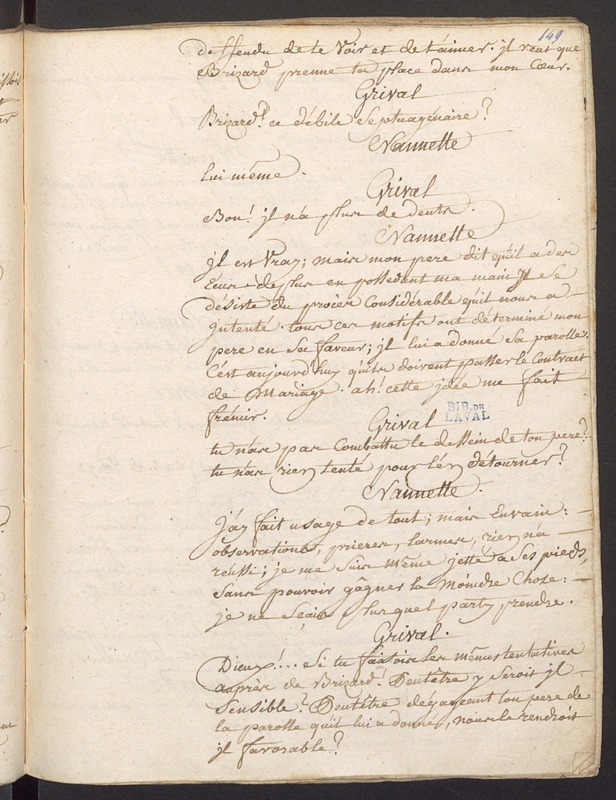 149
deffendu de te Voir et de t'aimer. jl veut que
Brizard prenne ta place dans mon Cœur.
Grival
Brizard? ce débile Septuagénaire?
Nannette
lui même.
Grival
Bon! jl n'a plus de dents.
Nannette
jl est Vray; mais mon pere dit qu'il a des
Ecus - de plus en possedant ma main jl se
désiste du procès Considérable qu'il nous a
jntenté. tous ces motifs ont déterminé mon
pere en Sa faveur; jl lui a donné Sa parolle.
C'est aujourd'huy qu'ils doivent passer le Contract
de Mariage. ah! cette jdée me fait
frémir.
Grival
BIB. DE
LAVAL
tu n'as pas Combattu le dessein de ton pere?
tu n'as rien tenté pour l'en détourner?
Nannette.
j'ay fait usage de tout; mais Envain:
observations, prieres, larmes, rien n'a
réussi; je me Suis même jetté a Ses pieds,
Sans pouvoir gâgner la Moindre Chose:
je ne Sçais plus quel party prendre.
Grival.
Dieux!... Si tu faisois les mêmes tentatives
auprès de Brizard! Peutêtre y Seroit jl
Sensible? Peutêtre dégageant ton pere de
la parolle qu'il lui a donné, nous le rendroit
jl favorable?